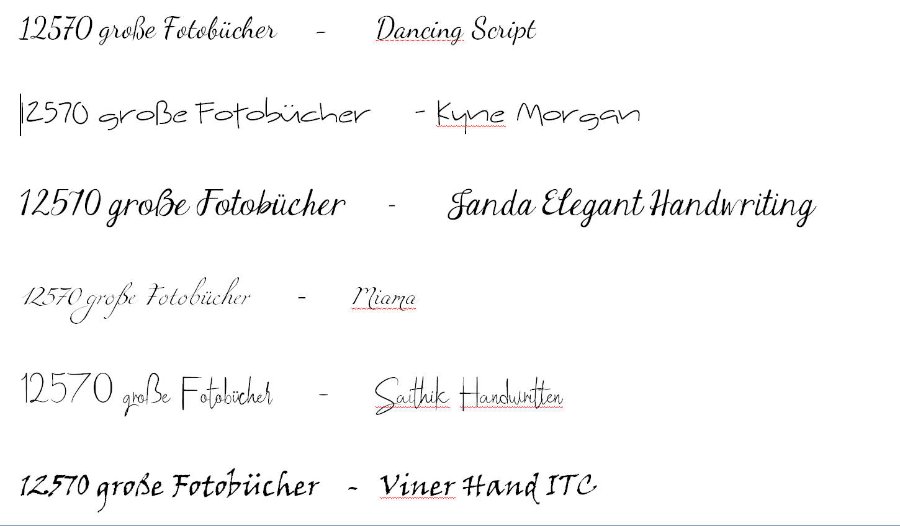 12570 große Fotobücher - Dancing Script
12570 große Fotobücher - Kyne Morgan
12570 große Fotobücher - Janda Elegant Handwriting
12570 große Fotobücher - Miama
12570 große Fotobücher - Saithik Handwritten
12570 große Fotobücher - Viner Hand ITC